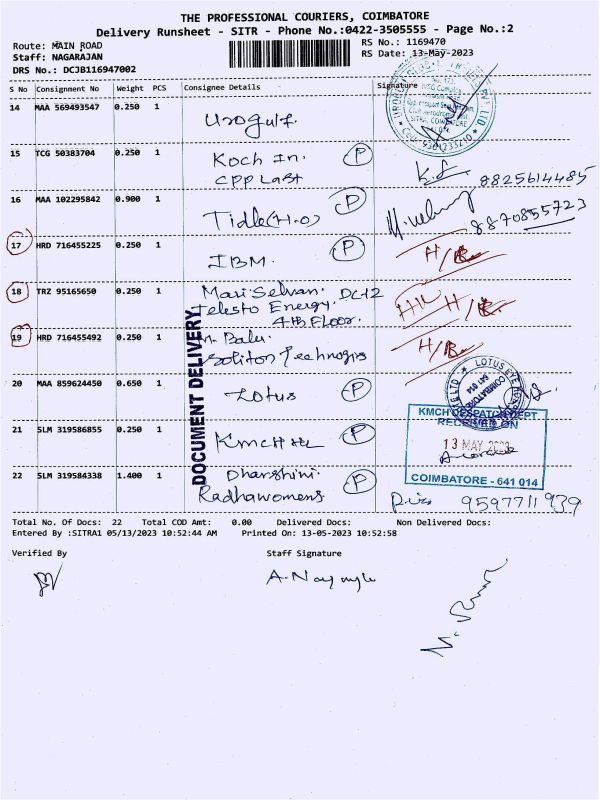 THE PROFESSIONAL COURIERS, COIMBATORE
Delivery Runsheet - SITR - Phone No.:0422-3505555 - Page No.:2
Route: MAIN ROAD
RS No.: 1169470
Staff: NAGARAJAN
RS Date: 13-May-2023
DRS No.: DCJB116947002
S No Consignment No Weight PCS Consignee Details Signature
14 MAA 569493547 0.250 1 Urogulf.
15 TCG 50383704 0.250 1 Koch In. P
CPP Last 8825614485
16 MAA 102295842 0.900 1 Tidle(H.O) P 8870855723
17 HRD 716455225 0.250 1 IBM. P H/
18 TRZ 95165650 0.250 1 Mari Selvan. DC-12
Telesto Energy.
4th Floor.
19 HRD 716455492 0.250 1 M. Balu H/
Soliton
20 MAA 859624450 0.650 1 Lotus P
21 SLM 319586855 0.250 1 KMCH P
22 SLM 319584338 1.400 1 Dharshini. P
Radhawomens 9597711939
DOCUMENT DELIVERY
SITRA, COIMBATORE
LOTUS EYE
COIMBATORE
641 014
KMCH DESPATCH DEPT
RECEIVED ON
13 MAY 2023
COIMBATORE - 641 014
Total No. Of Docs: 22 Total COD Amt: 0.00 Delivered Docs: Non Delivered Docs:
Entered By :SITRA1 05/13/2023 10:52:44 AM Printed On: 13-05-2023 10:52:58
Verified By Staff Signature